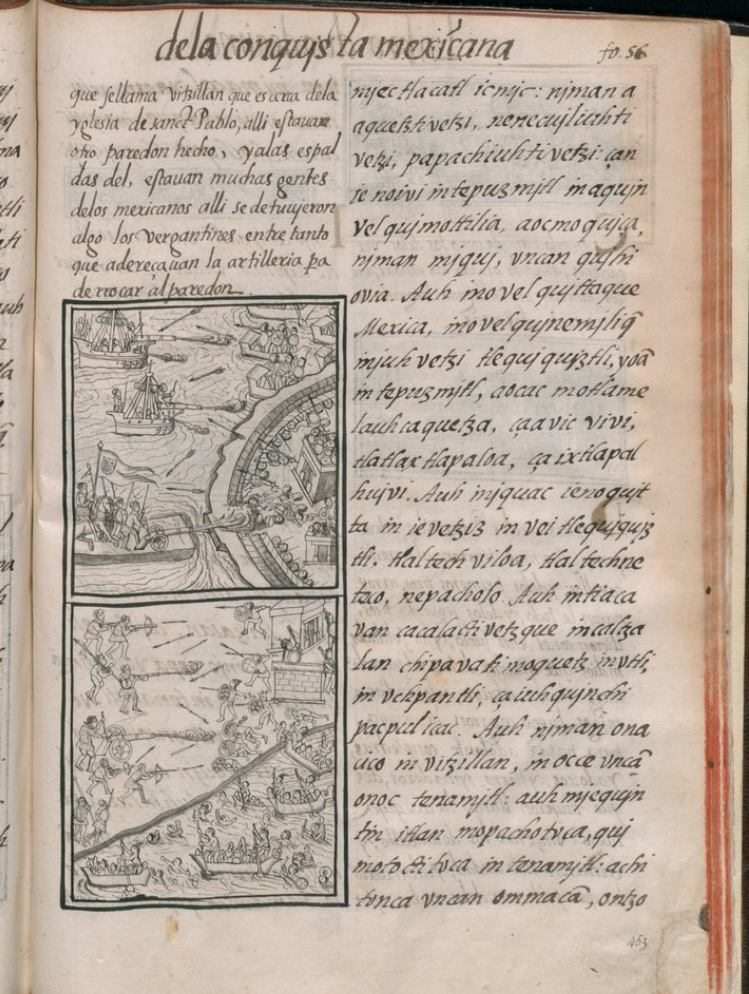 dela conquista mexicana
fo. 56
que se llama vitzillan que es cerca dela
yglesia de sanct Pablo, alli estauan
otro paredon hecho, y a las espal
das del, estauan muchas gentes
delos mexicanos alli se detuujeron
algo los vergantines entre tanto
que adereçauan la artilleria pa
derrocar al paredon
njec tlacatl ic mjc: njman a
aquetztivetzi, nenecujliuhti
vetzi, papachiuhtivetzi: çan
ie noivi in tepuzmjtl in aqujn
vel qujmottilia, aocmo quiça,
njman mjquj, vncan qujhi
ovia. Auh in o vel qujttaque
Mexica, in o vel qujnemjliq̃
in juh vetzi tlequiquiztli, yoã
in tepuzmjtl, aocac motlame
lauhcaquetza, ça avic vivi,
tlatlaxtlapaloa, ça ixtlapal
hujvi. Auh in jquac ie no qujt
ta in ie vetziz in vei tlequjqujz
tli, tlaltech viloa, tlaltechne
teco, nepacholo Auh in tiaca
van cacalactivetzque in caltza
lan chipavati moquetz in vtli,
in vchpantli, ça iuhqujn chi
pacpul icac. Auh njman ona
cico in vitzillan, in occe vncã
onoc tenamjtl: auh mjequjn
tin itlan mopachotoca, quj
mototitoca in tenamjtl: achi
tonca vncan ommacã, ontzo
463